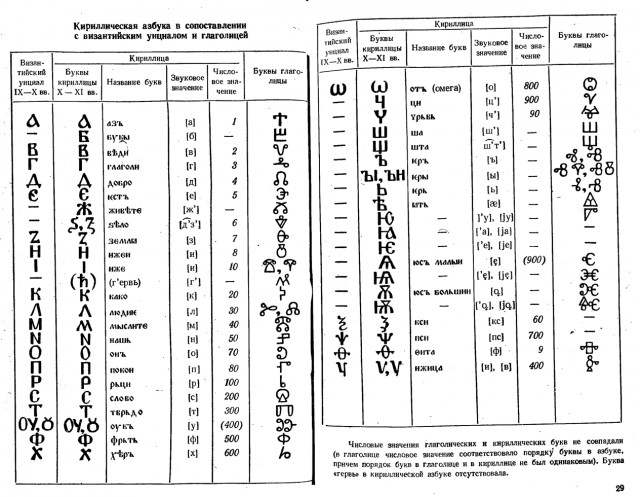 Кириллическая азбука в сопоставлении
с византийским унциалом и глаголицей
Визан-
тийский
унциал
IX—X вв.
Кириллица
Буквы
кириллицы
X—XI вв.
Название букв
Звуковое
значение
Число-
вое зна-
чение
Буквы глаго-
лицы
А А азъ [а] 1
— Б букы [б] —
В В вѣди [в] 2
Г Г глаголи [г] 3
Д Д добро [д] 4
Є Є єстъ [е] 5
— Ж живѣте [ж’] —
— Ѕ, ѕѣло [д’з’] 6
Z Z землꙗ [з] 7
Н Н ижеи [и] 8
І І иже [и] 10
— (ћ) (г’ервь) [г’] —
К К како [к] 20
Л Л людиѥ [л] 30
М М мыслите [м] 40
N N нашь [н] 50
О О онъ [о] 70
П П покои [п] 80
Р Р рьци [р] 100
С С слово [с] 200
Т Т тврьдо [т] 300
ОУ, Ȣ ОУ, Ȣ оукъ [у] (400)
Ф Ф фрьтъ [ф] 500
Х Х хѣръ [х] 600
Визан-
тийский
унциал
IX—X вв.
Кириллица
Буквы
кириллицы
X—XI вв.
Название букв
Звуковое
значение
Число-
вое зна-
чение
Буквы глаго-
лицы
Ѡ Ѡ отъ (омега) [о] 800
— Ц ци [ц’] 900
— Ч чрьвь [ч’] 90
— Ш ша [ш’] —
— Щ шта [ш’т’] —
— Ъ ѥръ [ъ] —
— ЪІ, ЪН ѥры [ы] —
— Ь ѥрь [ь] —
— Ѣ ѣть [æ] —
— Ю — [’у], [jу] —
— Ꙗ — [’а], [ja] —
— Ѥ — [’е], [je] —
— Ѧ юсъ малыи [ę] (900)
— Ѩ — [’ę], [ję] —
— Ѫ юсъ большии [ǫ] —
— Ѭ — [’ǫ], [jǫ] —
Ѯ Ѯ кси [кс] 60
Ѱ Ѱ пси [пс] 700
Ѳ Ѳ ѳита [ф] 9
Ѵ Ѵ, Ѵ ижица [и], [в] 400
Числовые значения глаголических и кириллических букв не совпадали
(в глаголице числовое значение соответствовало порядку буквы в азбуке,
причем порядок букв в глаголице и в кириллице не был одинаковым). Буква
«гервь» в кириллической азбуке отсутствовала.
29